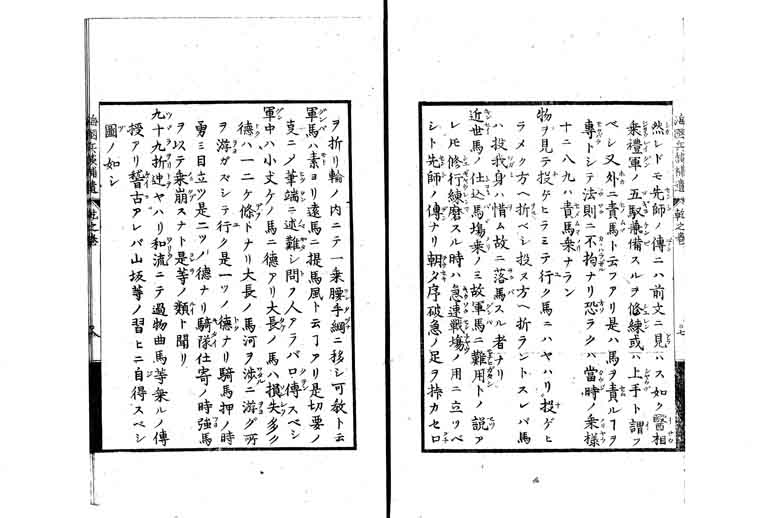 然レドモ先師ノ傳ニハ前文ニ見ハス如ク醫相
乗禮軍ノ五馭兼備スルヲ修練或ハ上手ト謂フ
ベシ又外ニ責馬ト云フアリ是ハ馬ヲ責ルヿヲ
專トシテ法則ニ不拘ナリ恐ラクハ當時ノ乗様
十ニ八九ハ責馬乗ナラン
物ヲ見テ投ゲヒラミテ行ク馬ニハヤハリ投ゲヒ
ラメク方ヘ折ベシ投ヌ方ヘ折ラントスレバ馬
ハ投我身ハ惜ム故ニ落馬スル者ナリ
近世馬ノ仕込馬場乗ノミ故軍馬ニ難用トノ説ア
レモ修行練磨スル時ハ急速戰場ノ用ニ立ツベ
シト先師ノ傳ナリ朝夕序破急ノ足ヲ拵カセロ
海國兵談補遺 乾之巻
七
ヲ折リ輪ノ内ニテ一乗腰手綱ニ移シ可教ト云
軍馬ハ素ヨリ遠馬ニ提馬風ト云フアリ是切要ノ
支ニノ筆端ニ述難シ問フ人アラバ口傳スベシ
軍中ハ小丈ケノ馬ニ德アリ大長ノ馬ハ損失多ク
德ハ一二ケ條トナリ大長ノ馬河ヲ渉ニ游グ所
ヲ游ガズシテ行ク是一ツノ德ナリ騎馬押ノ時
勇ミ目立ツ是二ツノ德ナリ騎隊仕寄ノ時強馬
ヲ以ステ乗崩スナト是等ノ類ト聞リ
九十九折迚ヤハリ和流ニテ過物曲馬等乗ルノ傳
授アリ誓古アレバ山坂等ノ習ヒニ自得スベシ
圖ノ如シ
海國兵談補遺 乾之巻